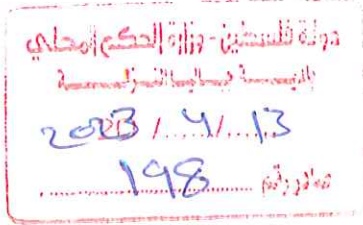 دولة فلسطين - وزارة الحكم المحلي
2023 /..4../...13
صادر رقم ......198......